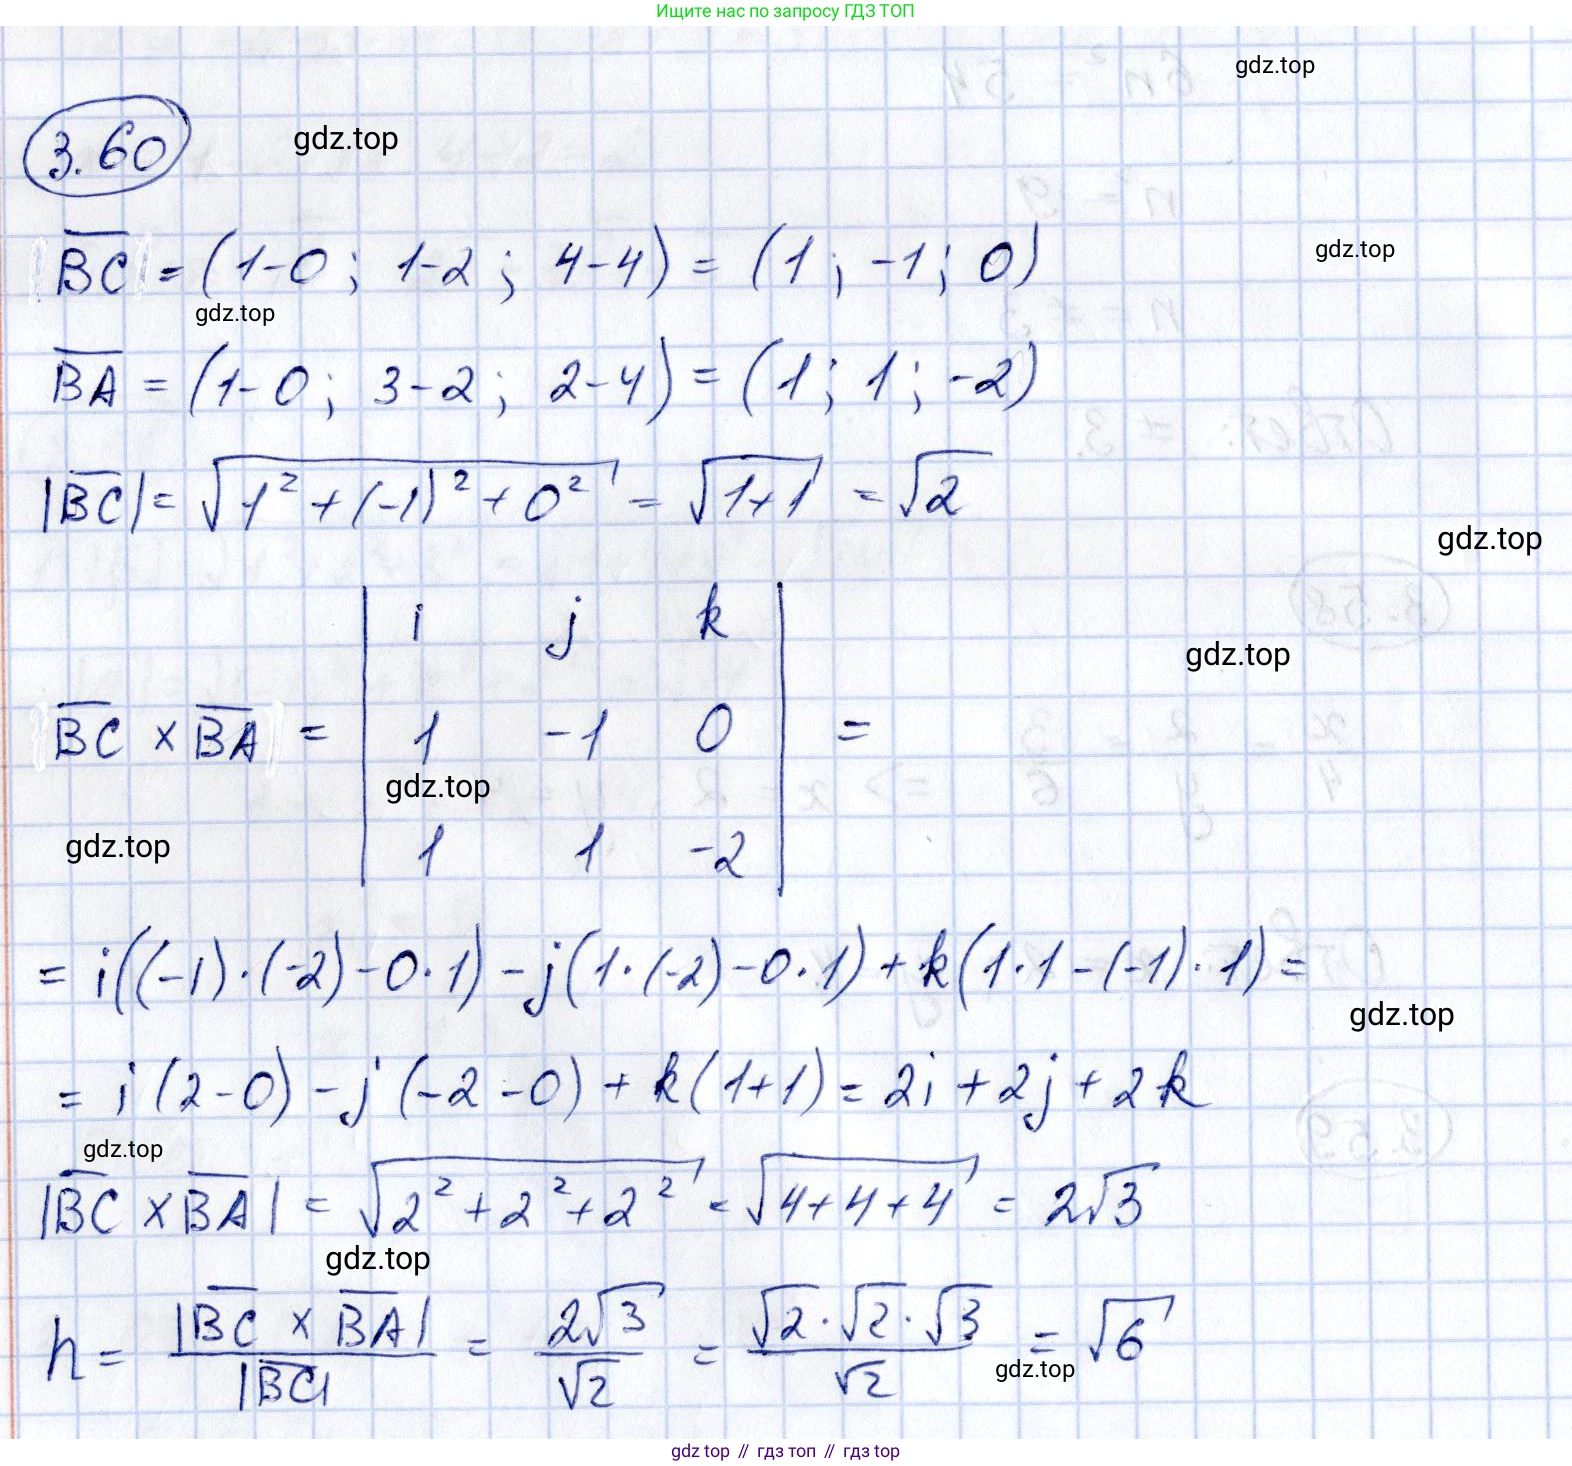 Ищите нас по запросу ГДЗ ТОП
gdz.top
3.60
gdz.top
BC = (1-0; 1-2; 4-4) = (1; -1; 0)
gdz.top
gdz.top
BA = (1-0; 3-2; 2-4) = (1; 1; -2)
|BC| = √(1² + (-1)² + 0²) = √(1+1) = √2
gdz.top
i j k
gdz.top
BC × BA = | 1 -1 0 | =
gdz.top
gdz.top
1 1 -2
= i((-1)·(-2)-0·1) - j(1·(-2)-0·1) + k(1·1-(-1)·1) =
gdz.top
= i(2-0) - j(-2-0) + k(1+1) = 2i + 2j + 2k
gdz.top
|BC × BA| = √(2² + 2² + 2²) = √(4+4+4) = 2√3
gdz.top
h = |BC × BA| / |BC| = 2√3 / √2 = √2·√2·√3 / √2 = √6
gdz.top
gdz top // гдз топ // гдз top